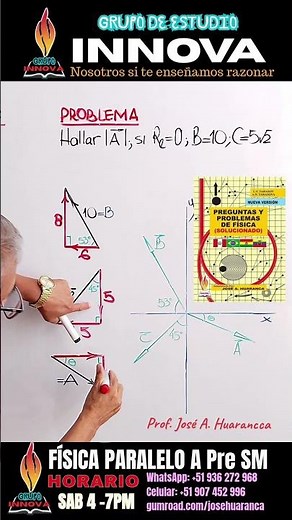 GRUPO DE ESTUDIO
INNOVA
GRUPO
INNOVA
Nosotros si te enseñamos razonar
PROBLEMA
Hallar |A|, si R₂=0; B=10; C=5√2
8
10=B
53°
6
NUEVA VERSIÓN
PREGUNTAS Y
PROBLEMAS
DE FÍSICA
(SOLUCIONADO)
JOSE A. HUARANCCA
B
53°
45°
5
5
C
45°
θ
x
A
θ
=A
Prof. José A. Huarancca
FÍSICA PARALELO A Pre SM
HORARIO
SAB 4 -7PM
WhatsApp: +51 936 272 968
Celular: +51 907 452 996
gumroad.com/josehuaranca
GRUPO
INNOVA